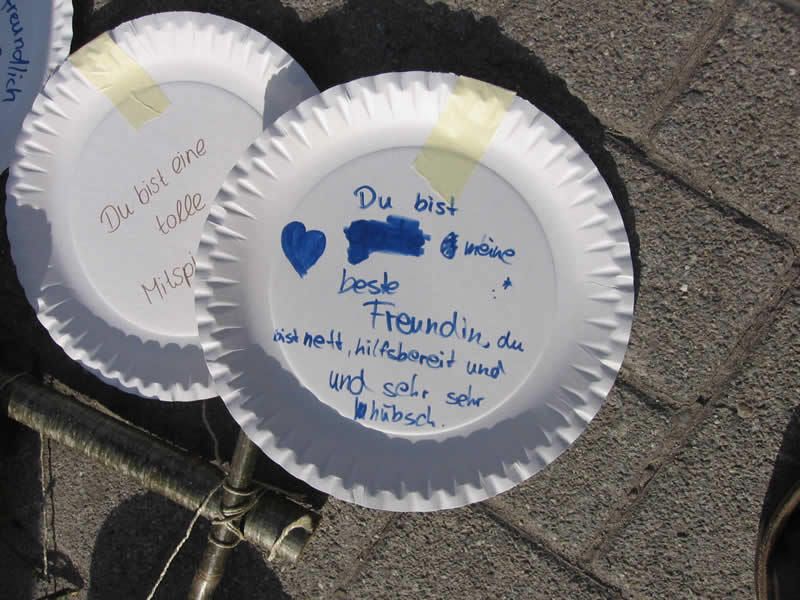 freundlich
Du bist eine
tolle
Du bist
meine
beste
Freundin, du
bist nett, hilfsbereit und
und sehr sehr
hübsch.